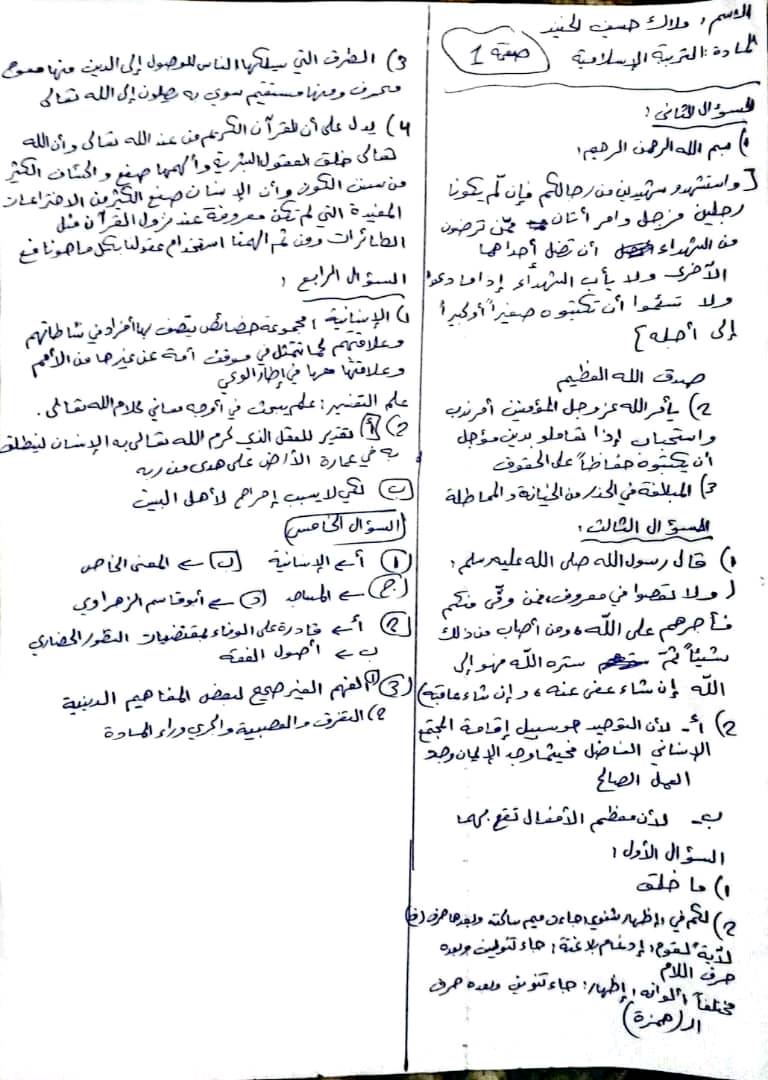 الاسم: ملاك حسين الجنيد
المادة: التربية الإسلامية
صفحة 1
السؤال الثاني:
1) بسم الله الرحمن الرحيم:
[واستشهدو شهيدين من رجالكم فإن لم يكونا
رجلين فرجل وامرأتان ممّن ترضون
من الشهداء أن تضل أحداهما
الأخرى ولا يأب الشهداء إذا ما دعوا
ولا تسئموا أن تكتبوه صغيراً أو كبيراً
إلى أجله]
صدق الله العظيم
2) يأمر الله عز وجل المؤمنين أمر ندب
واستحباب إذا تعاملو بدين مؤجل
أن يكتبوه حفاظاً على الحقوق
3) المبالغة في الحذر من الخيانة والمماطلة
السؤال الثالث:
1) قال رسول الله صلى الله عليه وسلم:
(ولا تعصوا في معروف، فمن وفّى منكم
فأجرهم على الله، ومن أصاب من ذلك
شيئاً ثمّ ستره الله فهو إلى
الله إن شاء عفى عنه، وإن شاء عاقبه)
2) أ- لأن التوحيد هو سبيل إقامة المجتمع
الإنساني الفاضل فحيثما وجد الإيمان وجد
العمل الصالح
ب- لأن معظم الأفعال تقع بهما
السؤال الأول:
1) ما خلق
2) لكم في: إظهار شفوي: جاءت ميم ساكنة وبعدها حرف (ف)
لآية لقوم: إدغام بلا غنة: جاء تنوين وبعده
حرف اللام
مختلفاً ألوانه: إظهار: جاء تنوين وبعده حرف
الـ(همزة)
3) الطرق التي يسلكها الناس للوصول إلى الدين منها معوج
منحرف ومنها مستقيم سوي به يصلون إلى الله تعالى
4) يدل على أن القرآن الكريم من عند الله تعالى وأن الله
تعالى خلق العقول البشرية وألهمها صنع واكتشاف الكثير
من سنن الكون وأن الإنسان صنع الكثير من الاختراعات
المفيدة التي لم تكن معروفة عند نزول القرآن مثل
الطائرات ومن ثم ألهمنا استخدام عقولنا بكل ما هو نافع
السؤال الرابع:
1) الإنسانية: مجموعة خصائص يتصف بها أفراد في نشاطاتهم
وعلاقتهم كما تتمثل في موقف أمة عن غيرها من الأمم
وعلاقتها معها في إطار الوعي
علم التفسير: علم يبحث في أوجه معاني كلام الله تعالى.
2) أ) تقدير للعقل الذي كرم الله تعالى به الإنسان لينطلق
به في عمارة الأرض على هدى من ربه
ب) لكي لا يسبب إحراج لأهل البيت
السؤال الخامس
1) أ ← الإنسانية ب ← المعنى الخاص
ج ← المساجد د ← أبو قاسم الزهراوي
2) أ ← قادرة على الوفاء بمقتضيات التطور الحضاري
ب ← أصول الفقه
3) 1) الفهم الغير صحيح لبعض المفاهيم الدينية
2) التفرق والعصبية والجري وراء المادة